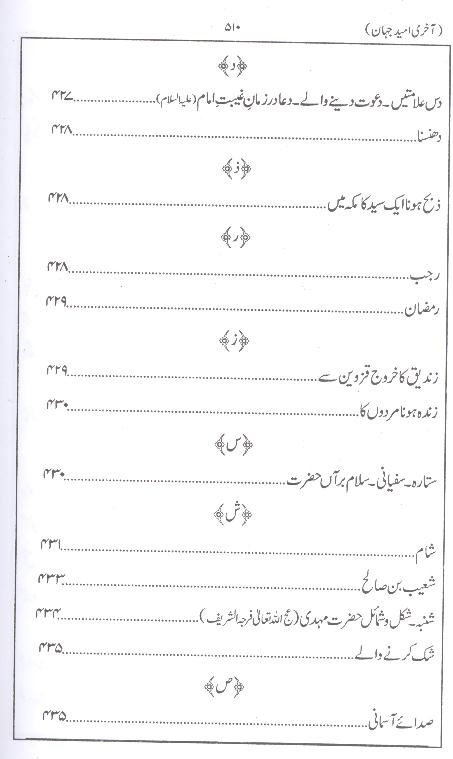 (آخری امید جہان) ۵۱۰
﴿د﴾
دس علامتیں۔ دعوت دینے والے۔ دعا در زمانِ غیبتِ امام (علیہ السلام)..............................۴۲۷
دھنسنا..............................۴۲۸
﴿ذ﴾
ذبح ہونا ایک سید کا مکہ میں..............................۴۲۸
﴿ر﴾
رجب..............................۴۲۸
رمضان..............................۴۲۹
﴿ز﴾
زندیق کا خروج قزوین سے..............................۴۲۹
زندہ ہونا مردوں کا..............................۴۳۰
﴿س﴾
ستارہ۔ سفیانی۔ سلام بر آں حضرت..............................۴۳۰
﴿ش﴾
شام..............................۴۳۱
شعیب بن صالح..............................۴۳۳
شنبہ۔ شکل و شمائل حضرت مہدی (عج اللہ تعالیٰ فرجہ الشریف)..............................۴۳۴
شک کرنے والے..............................۴۳۵
﴿ص﴾
صدائے آسمانی..............................۴۳۵